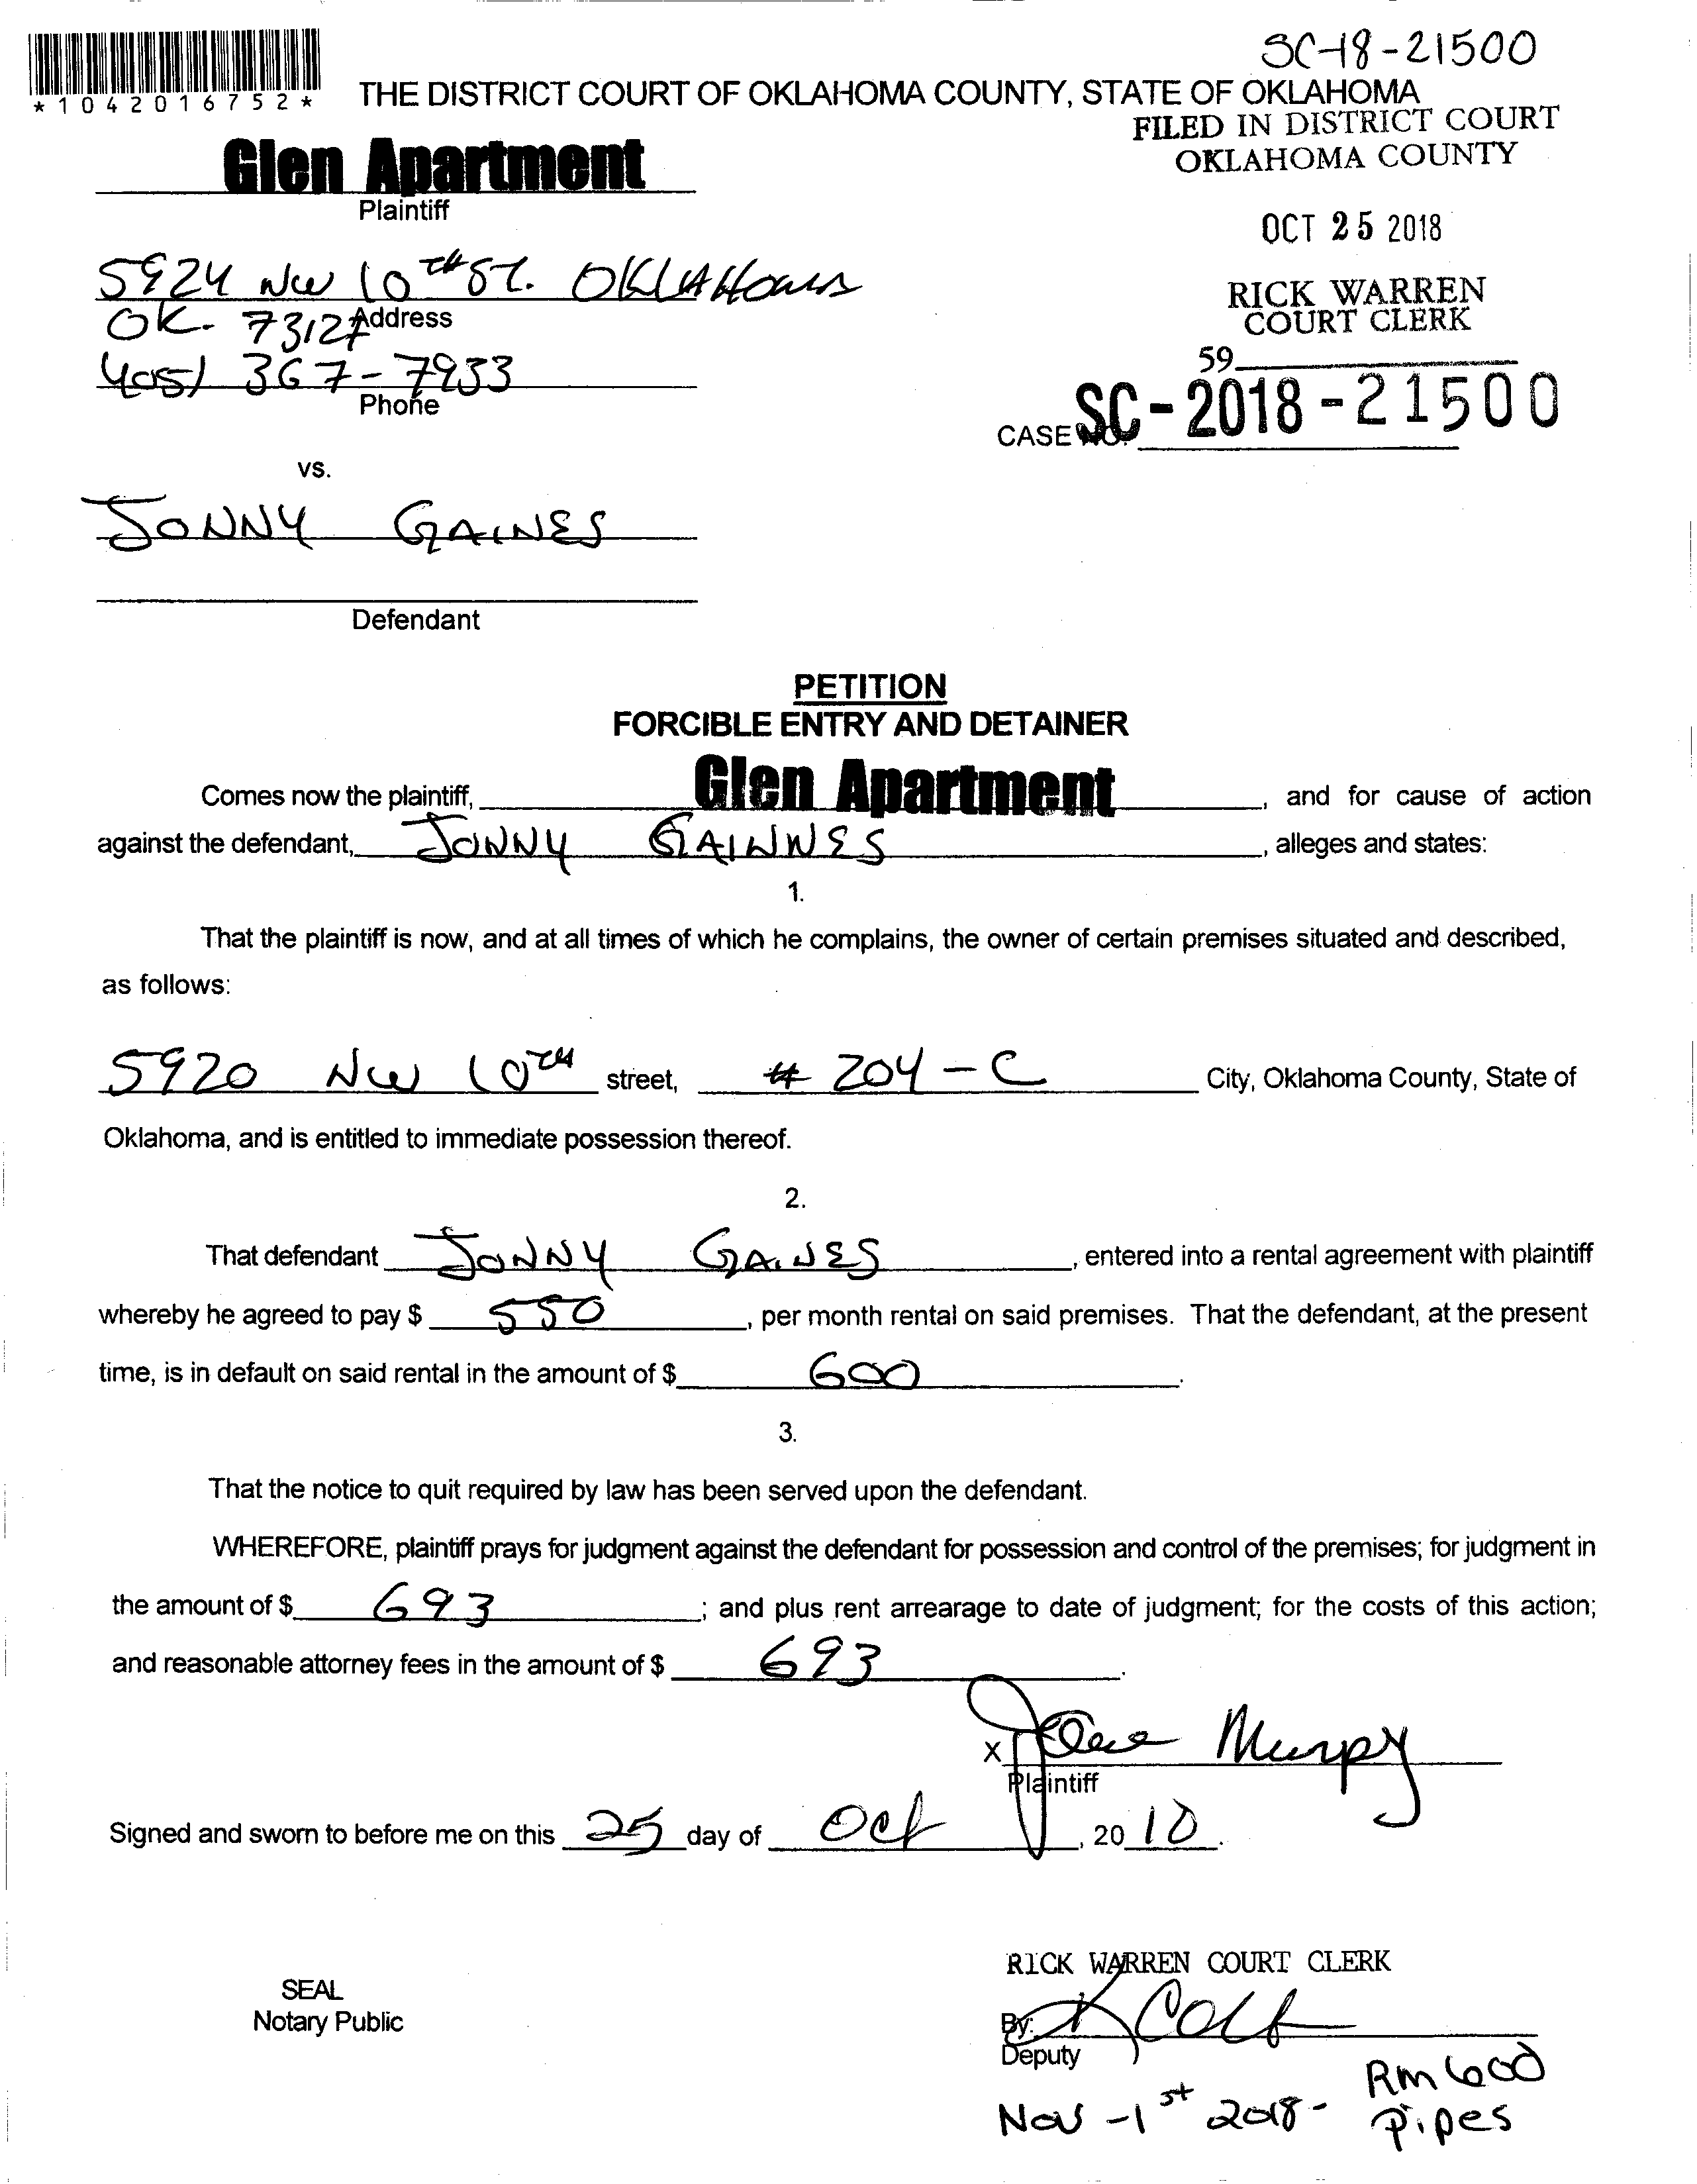 SC-18-21500
*1042016752*
THE DISTRICT COURT OF OKLAHOMA COUNTY, STATE OF OKLAHOMA
FILED IN DISTRICT COURT
OKLAHOMA COUNTY
Glen Apartment
Plaintiff
OCT 25 2018
5924 NW 10TH ST. OKLAHOMA
OK. 73127
Address
RICK WARREN
COURT CLERK
(405) 367-7933
Phone
59
CASE NO. SC-2018-21500
vs.
JONNY GAINES
Defendant
PETITION
FORCIBLE ENTRY AND DETAINER
Comes now the plaintiff, Glen Apartment, and for cause of action
against the defendant, JONNY GAINNES, alleges and states:
1.
That the plaintiff is now, and at all times of which he complains, the owner of certain premises situated and described,
as follows:
5920 NW 10TH street, # 204-C City, Oklahoma County, State of
Oklahoma, and is entitled to immediate possession thereof.
2.
That defendant JONNY GAINES, entered into a rental agreement with plaintiff
whereby he agreed to pay $ 550, per month rental on said premises. That the defendant, at the present
time, is in default on said rental in the amount of $ 600.
3.
That the notice to quit required by law has been served upon the defendant.
WHEREFORE, plaintiff prays for judgment against the defendant for possession and control of the premises; for judgment in
the amount of $ 693; and plus rent arrearage to date of judgment; for the costs of this action;
and reasonable attorney fees in the amount of $ 693.
X Murpy
Plaintiff
Signed and sworn to before me on this 25 day of Oct, 2018.
RICK WARREN COURT CLERK
SEAL
Notary Public
By: K
Deputy
Nov-1st 2018-
Rm 600
Pipes